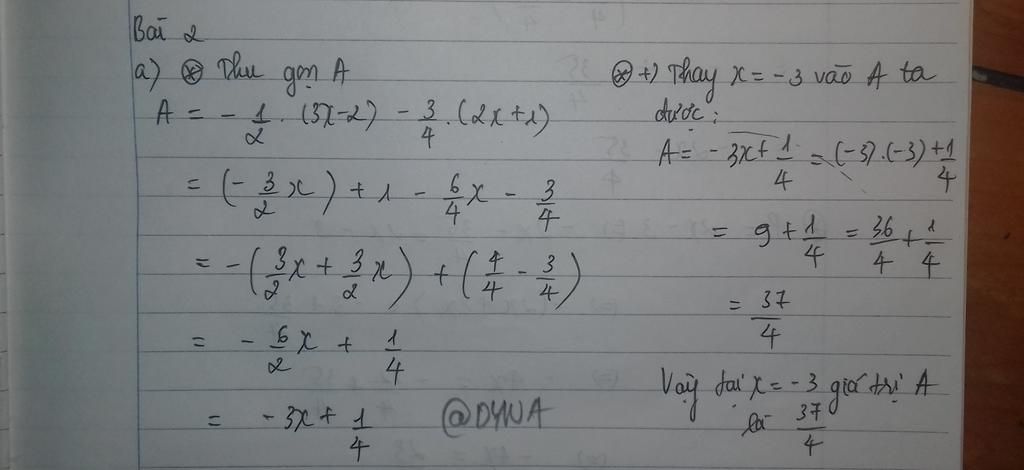 Bài 2
a) ⊛ Thu gọn A
A = - 1/2 . (3x-2) - 3/4 . (2x+1)
= (- 3/2 x) + 1 - 6/4 x - 3/4
= - (3/2 x + 3/2 x) + (4/4 - 3/4)
= - 6/2 x + 1/4
= - 3x + 1/4
@DYNA
⊛ +) Thay x = -3 vào A ta
được:
A = - 3x + 1/4 = (-3).(-3) + 1/4
= 9 + 1/4 = 36/4 + 1/4
= 37/4
Vậy tại x = -3 giá trị A
là 37/4